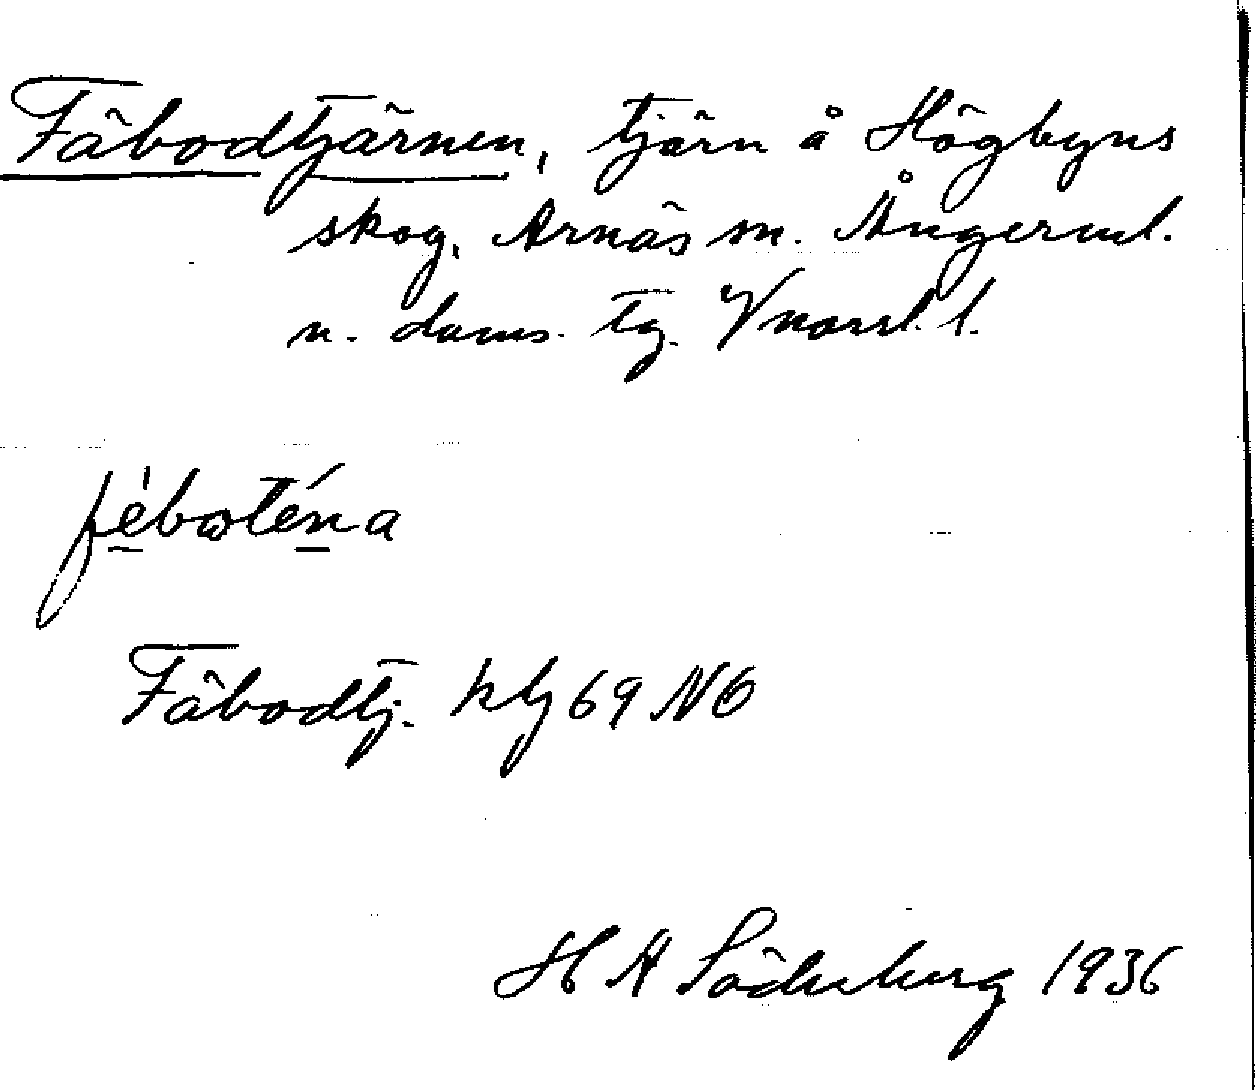 Fäbodtjärnen, tjärn å Högbyns
skog, Arnäs sn. Ångerml.
n. doms. tg. Vnorrl. l.
Fäbodtj. kbj 69 NÖ
H A Söderberg 1936